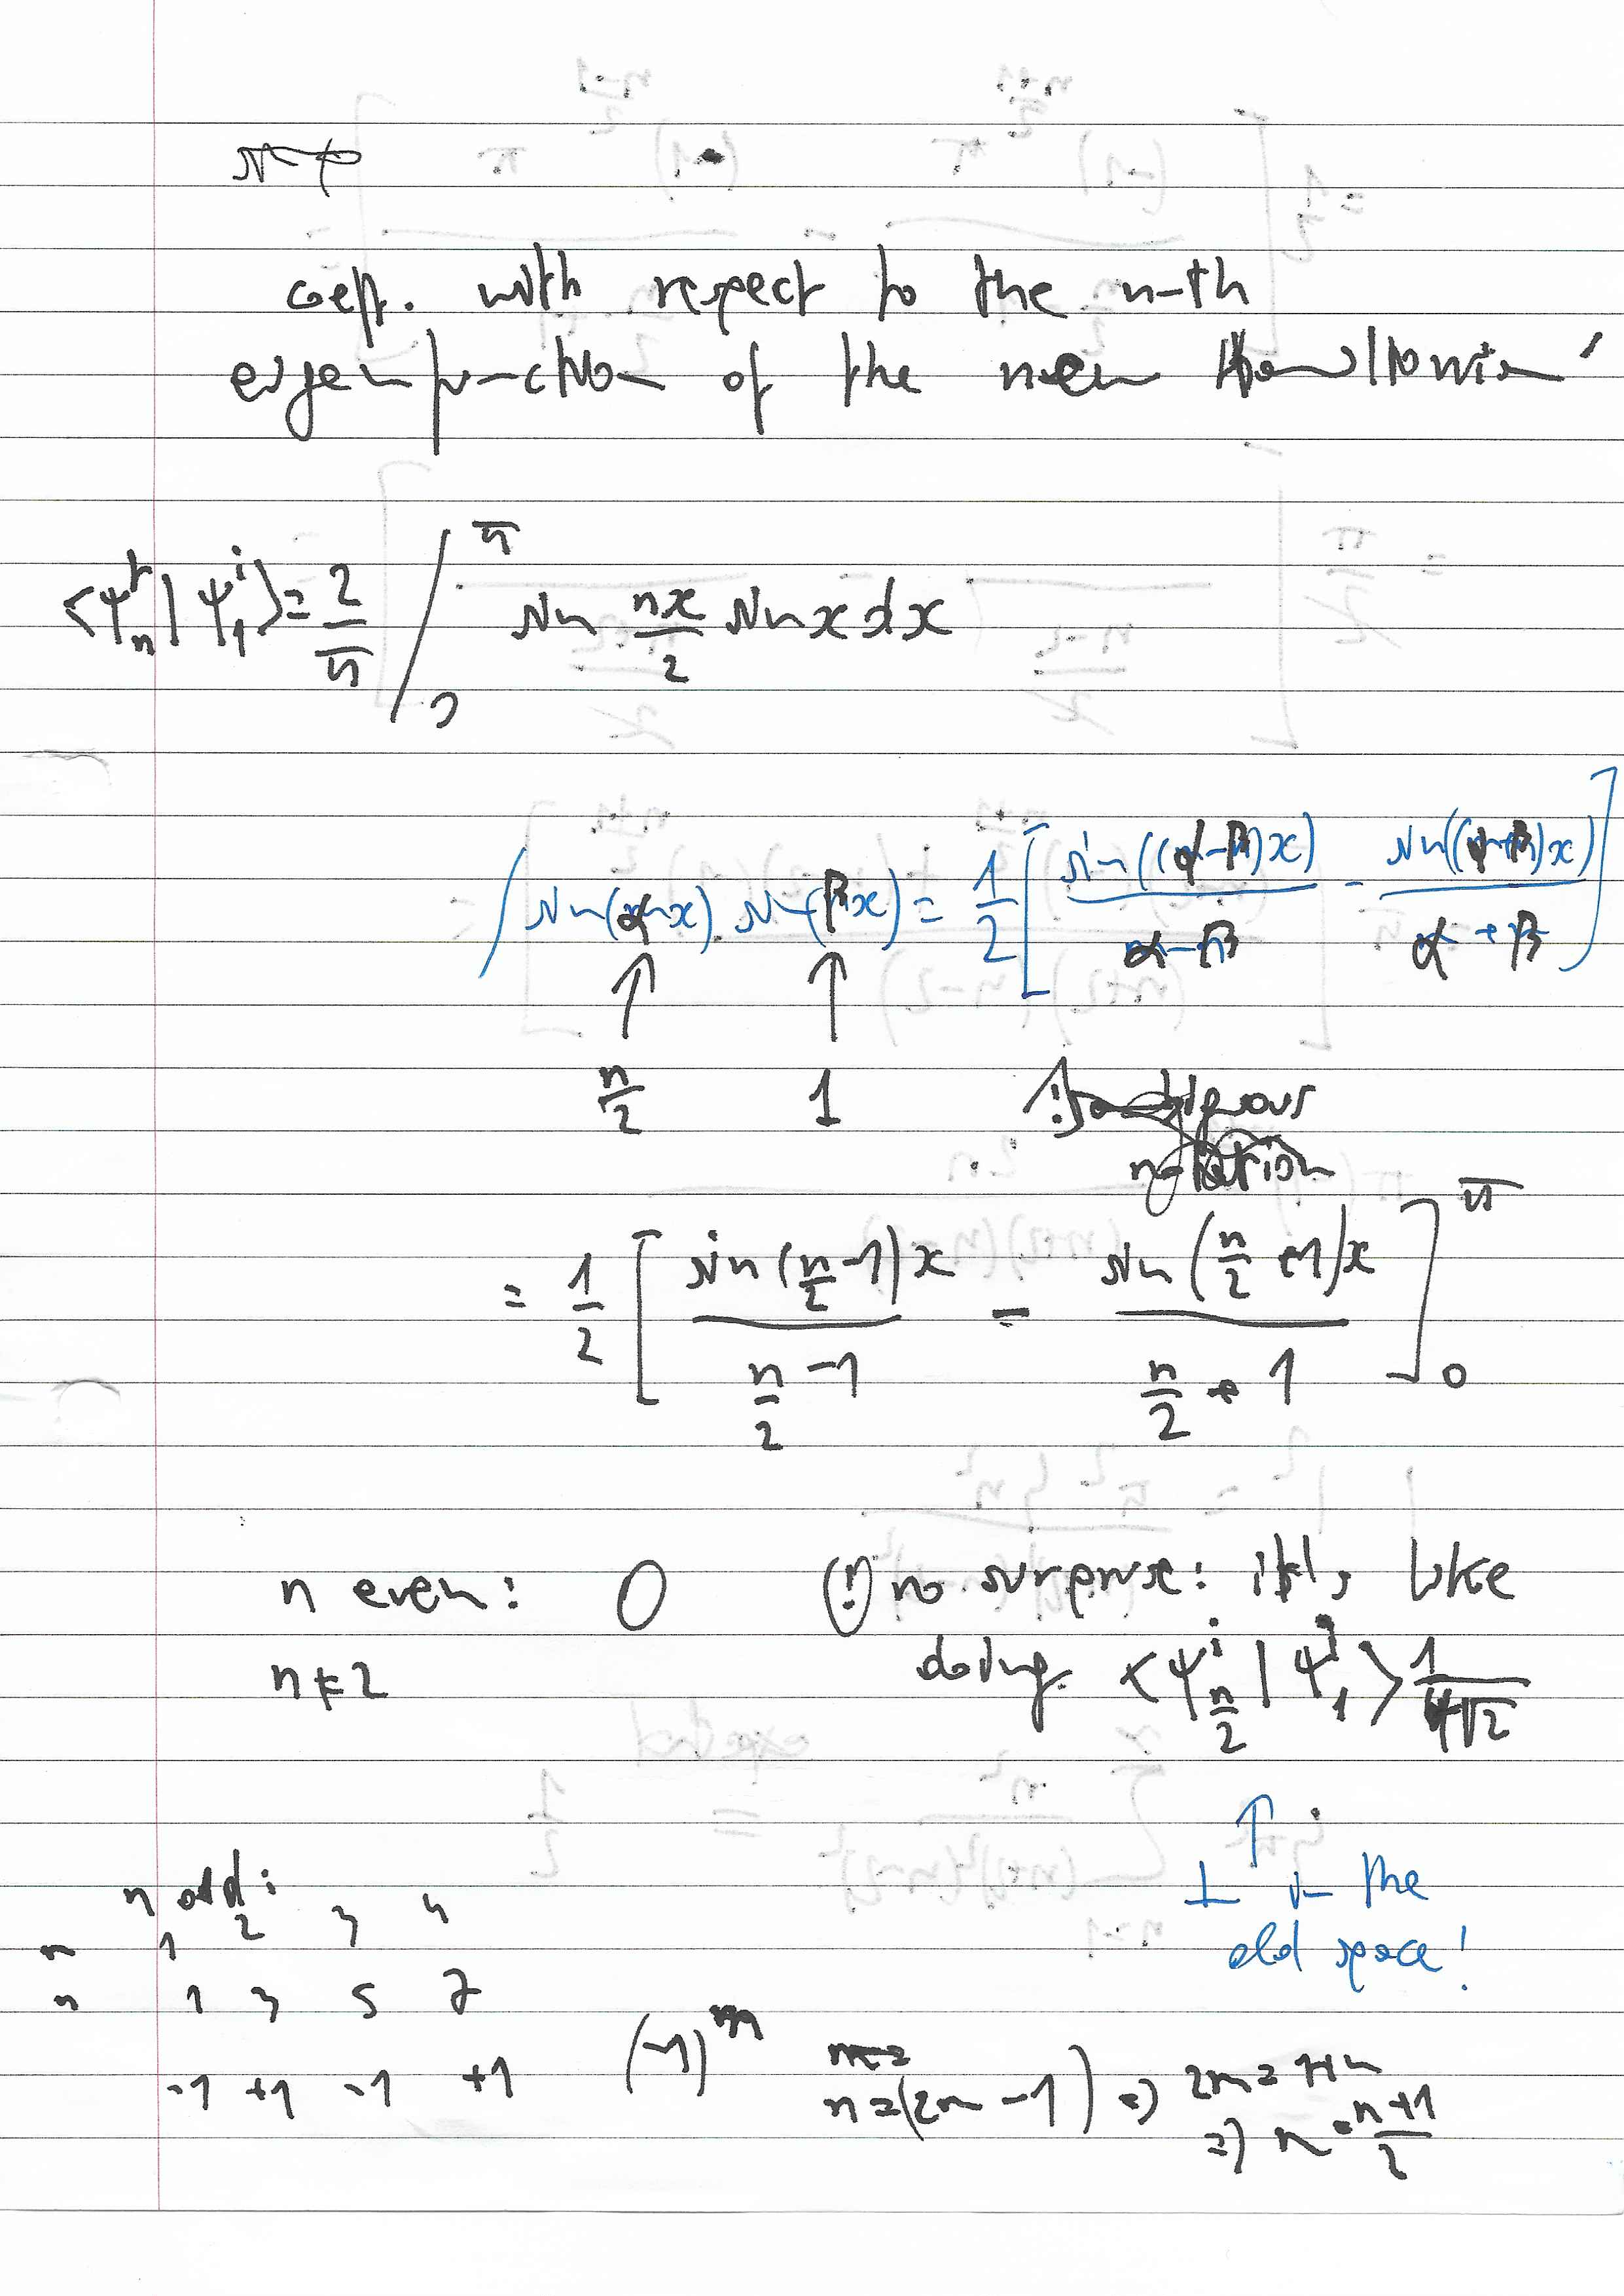 coeff. with respect to the n-th
eigenfunction of the new Hamiltonian
<ψₙᶠ | ψ₁ⁱ> = 2/π ∫₀^π sin nx/2 sin x dx
∫ sin(αx) sin(βx) = 1/2 [ sin((α-β)x)/(α-β) - sin((α+β)x)/(α+β) ]
↑ ↑
n/2 1
notation
= 1/2 [ sin(n/2 -1)x / (n/2 -1) - sin(n/2 +1)x / (n/2 + 1) ]₀^π
n even: 0 (!) no surprise: it's like
n≠2 doing <ψⁱ_{n/2} | ψⁱ₁> 1/√2
↑
⊥ in the
old space!
n odd:
m 1 2 3 4
n 1 3 5 7
-1 +1 -1 +1 (-1)^m n=(2m-1) ⇒ 2m=1+n
⇒ m = (n+1)/2